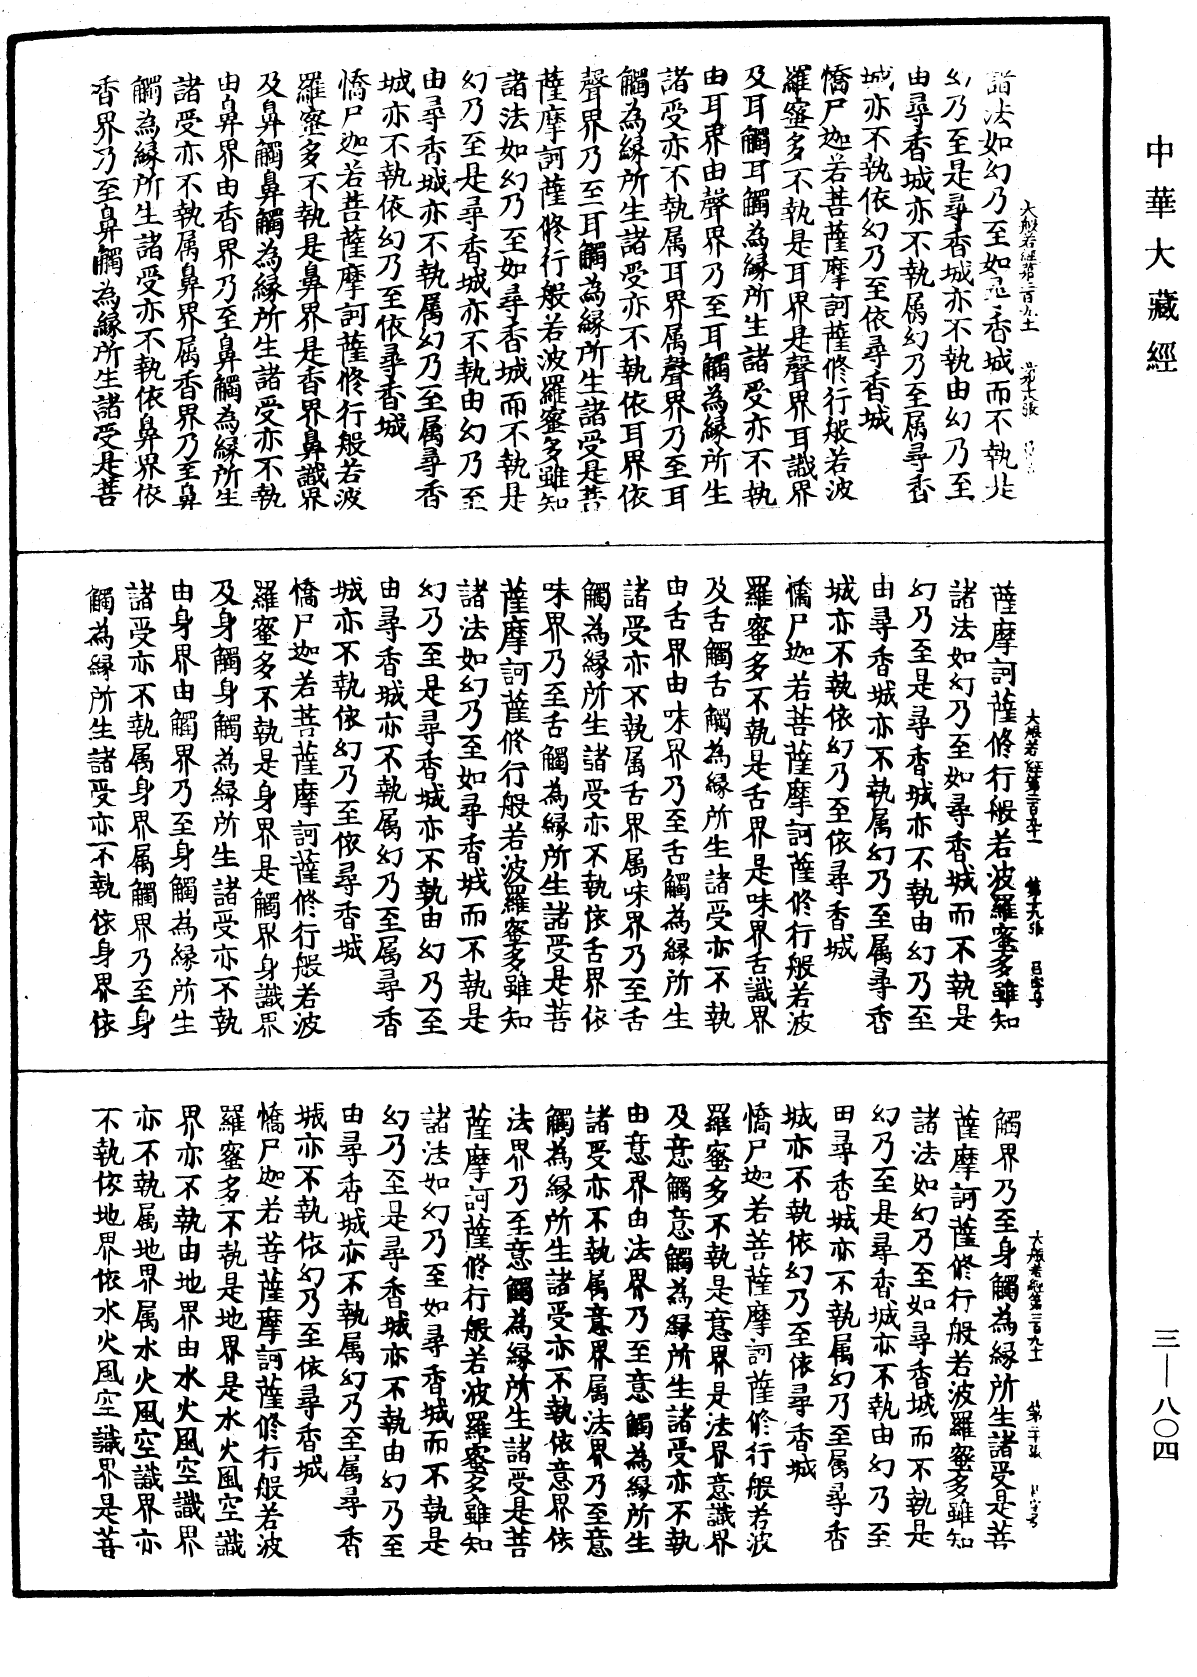 中華大藏經
諸法如幻乃至如尋香城而不執是
幻乃至是尋香城亦不執由幻乃至
由尋香城亦不執属幻乃至属尋香
城亦不執依幻乃至依尋香城
憍尸迦若菩薩摩訶薩修行般若波
羅蜜多不執是耳界是聲界耳識界
及耳觸耳觸為緣所生諸受亦不執
由耳界由聲界乃至耳觸為緣所生
諸受亦不執属耳界属聲界乃至耳
觸為緣所生諸受亦不執依耳界依
聲界乃至耳觸為緣所生諸受是菩
薩摩訶薩修行般若波羅蜜多雖知
諸法如幻乃至如尋香城而不執是
幻乃至是尋香城亦不執由幻乃至
由尋香城亦不執属幻乃至属尋香
城亦不執依幻乃至依尋香城
憍尸迦若菩薩摩訶薩修行般若波
羅蜜多不執是鼻界是香界鼻識界
及鼻觸鼻觸為緣所生諸受亦不執
由鼻界由香界乃至鼻觸為緣所生
諸受亦不執属鼻界属香界乃至鼻
觸為緣所生諸受亦不執依鼻界依
香界乃至鼻觸為緣所生諸受是菩
大般若經第二百九十一 第十九張 吕字号
薩摩訶薩修行般若波羅蜜多雖知
諸法如幻乃至如尋香城而不執是
幻乃至是尋香城亦不執由幻乃至
由尋香城亦不執属幻乃至属尋香
城亦不執依幻乃至依尋香城
憍尸迦若菩薩摩訶薩修行般若波
羅蜜多不執是舌界是味界舌識界
及舌觸舌觸為緣所生諸受亦不執
由舌界由味界乃至舌觸為緣所生
諸受亦不執属舌界属味界乃至舌
觸為緣所生諸受亦不執依舌界依
味界乃至舌觸為緣所生諸受是菩
薩摩訶薩修行般若波羅蜜多雖知
諸法如幻乃至如尋香城而不執是
幻乃至是尋香城亦不執由幻乃至
由尋香城亦不執属幻乃至属尋香
城亦不執依幻乃至依尋香城
憍尸迦若菩薩摩訶薩修行般若波
羅蜜多不執是身界是觸界身識界
及身觸身觸為緣所生諸受亦不執
由身界由觸界乃至身觸為緣所生
諸受亦不執属身界属觸界乃至身
觸為緣所生諸受亦不執依身界依
觸界乃至身觸為緣所生諸受是菩
薩摩訶薩修行般若波羅蜜多雖知
諸法如幻乃至如尋香城而不執是
幻乃至是尋香城亦不執由幻乃至
由尋香城亦不執属幻乃至属尋香
城亦不執依幻乃至依尋香城
憍尸迦若菩薩摩訶薩修行般若波
羅蜜多不執是意界是法界意識界
及意觸意觸為緣所生諸受亦不執
由意界由法界乃至意觸為緣所生
諸受亦不執属意界属法界乃至意
觸為緣所生諸受亦不執依意界依
法界乃至意觸為緣所生諸受是菩
薩摩訶薩修行般若波羅蜜多雖知
諸法如幻乃至如尋香城而不執是
幻乃至是尋香城亦不執由幻乃至
由尋香城亦不執属幻乃至属尋香
城亦不執依幻乃至依尋香城
憍尸迦若菩薩摩訶薩修行般若波
羅蜜多不執是地界是水火風空識
界亦不執由地界由水火風空識界
亦不執属地界属水火風空識界亦
不執依地界依水火風空識界是菩
三—八〇四